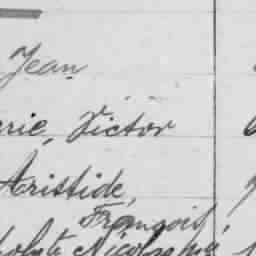 Jean
erie, Victor
Aristide,
François,
polyte Nicolas